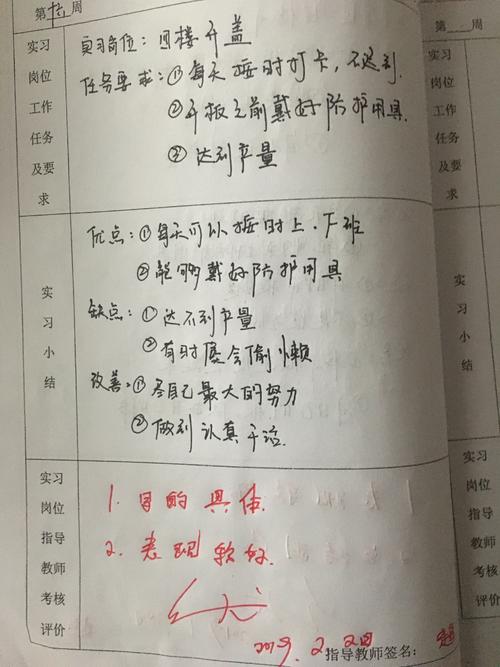 第十六周
实习岗位工作任务及要求
实习岗位：四楼开盖
任务要求：①每天按时打卡，不迟到.
②开板之前戴好防护用具.
③达到产量
实习小结
优点：①每天可以按时上、下班
②能够戴好防护用具
缺点：①达不到产量
②有时候会偷懒
改善：①尽自己最大的努力
②做到认真干活.
实习岗位指导教师考核评价
1. 目的具体.
2. 表现较好.
2019. 2. 22日
指导教师签名：
第 周
实习岗位工作任务及要求
实习小结
实习岗位指导教师考核评价